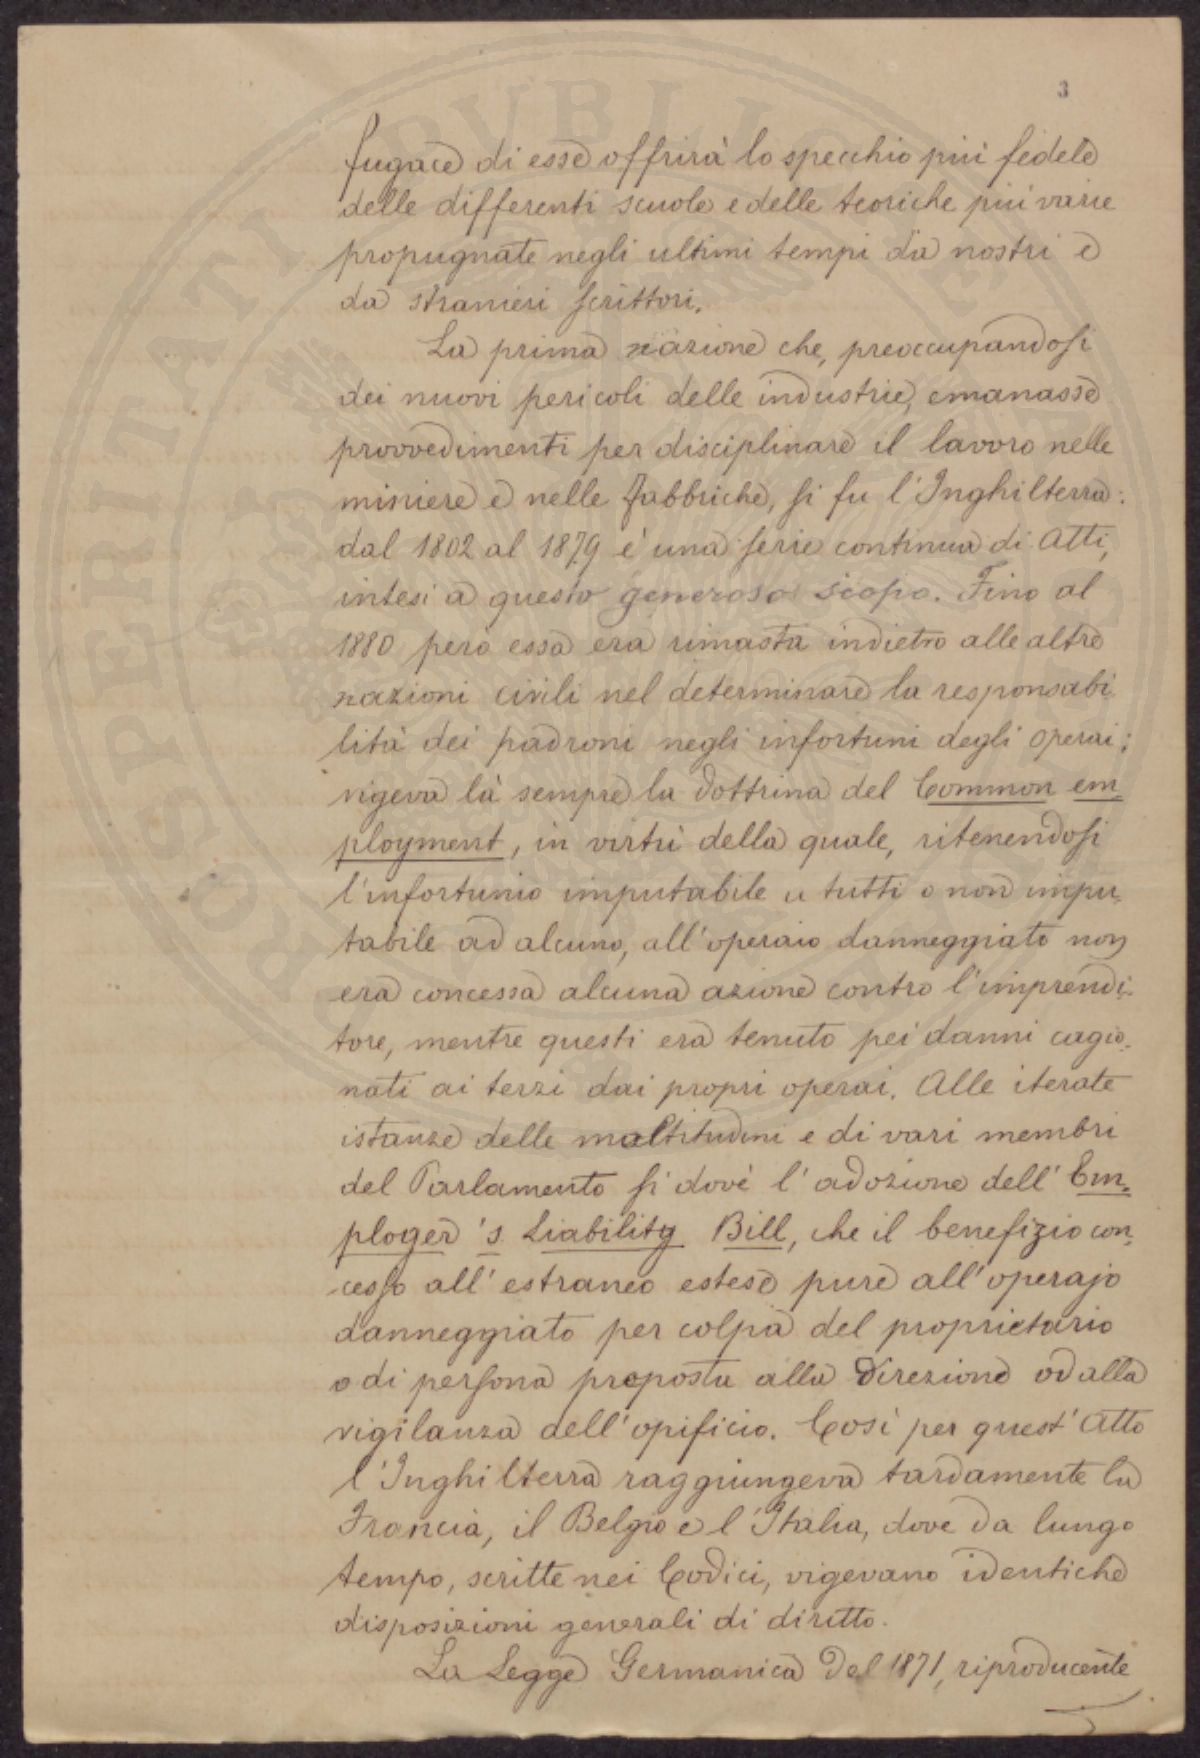 3
fugace di esse offrirà lo specchio più fedele
delle differenti scuole e delle teoriche più varie
propugnate negli ultimi tempi da nostri e
da stranieri scrittori.
La prima nazione che, preoccupandosi
dei nuovi pericoli delle industrie, emanasse
provvedimenti per disciplinare il lavoro nelle
miniere e nelle fabbriche, si fu l'Inghilterra:
dal 1802 al 1879 è una serie continua di Atti,
intesi a questo generoso scopo. Fino al
1880 però essa era rimasta indietro alle altre
nazioni civili nel determinare la responsabi
lità dei padroni negli infortuni degli operai;
vigeva là sempre la dottrina del Common em-
ployment, in virtù della quale, ritenendosi
l'infortunio imputabile a tutti o non impu-
tabile ad alcuno, all'operaio danneggiato non
era concessa alcuna azione contro l'imprendi-
tore, mentre questi era tenuto pei danni cagio-
nati ai terzi dai propri operai. Alle iterate
istanze delle moltitudini e di vari membri
del Parlamento si dovè l'adozione dell'Em-
ployer's Liability Bill, che il benefizio con-
cesso all'estraneo estese pure all'operajo
danneggiato per colpa del proprietario
o di persona preposta alla direzione od alla
vigilanza dell'opificio. Così per quest'Atto
l'Inghilterra raggiungeva tardamente la
Francia, il Belgio e l'Italia, dove da lungo
tempo, scritte nei Codici, vigevano identiche
disposizioni generali di diritto.
La Legge Germanica del 1871, riproducente
PROSPERITATI PUBLICAE